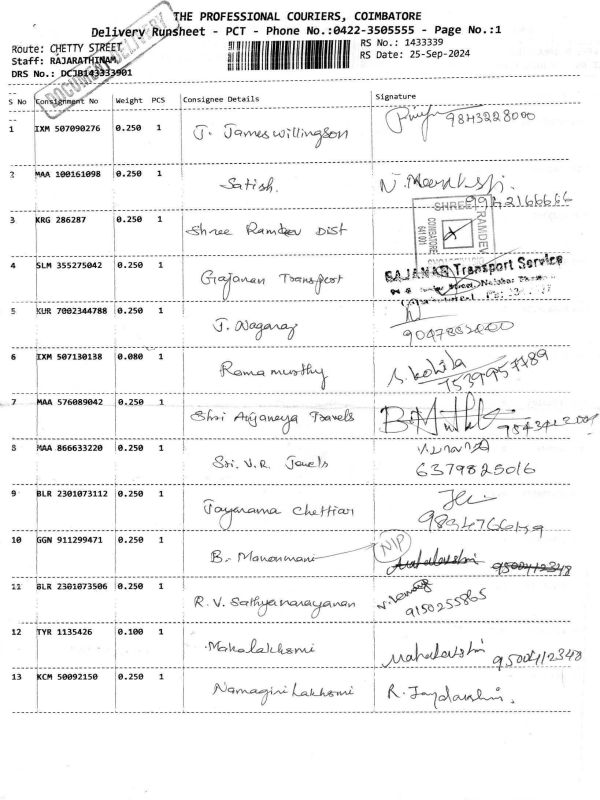 THE PROFESSIONAL COURIERS, COIMBATORE
Delivery Runsheet - PCT - Phone No.:0422-3505555 - Page No.:1
DOCUMENT DELIVERY
Route: CHETTY STREET
Staff: RAJARATHINAM
DRS No.: DCJB143333901
RS No.: 1433339
RS Date: 25-Sep-2024
S No Consignment No Weight PCS Consignee Details Signature
1 IXM 507090276 0.250 1 J. Jameswillingson 9843228000
2 MAA 100161098 0.250 1 Satish.
3 KRG 286287 0.250 1 Shree Ramdev Dist
SHREE RAMDEV
COIMBATORE
641 001
4 SLM 355275042 0.250 1 Gajanan Transport GAJANAN Transport Service
5 KUR 7002344788 0.250 1 J. Nagaraj
6 IXM 507130138 0.080 1 Rama murthy S. Kokila
7539957789
7 MAA 576089042 0.250 1 Shri Anjaneya Travels
8 MAA 866633220 0.250 1 Sri. V.R. Jewels
6379825016
9 BLR 2301073112 0.250 1 Jayarama Chettiar
10 GGN 911299471 0.250 1 B. Manonmani NIP Mahalakshmi 9500412348
11 BLR 2301073506 0.250 1 R. V. Sathyanarayanan
9150255865
12 TYR 1135426 0.100 1 Mahalakhsmi Mahalakshmi 9500412348
13 KCM 50092150 0.250 1 Namagiri Lakhsmi R. Jayalakshmi.